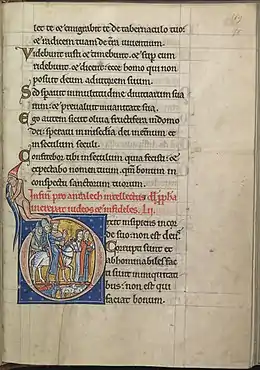 let te et emigrabit te de tabernaculo tuo:
et radicem tuam de tra uiuentium.
Videbunt iusti et timebunt. et sup eum
ridebunt. et dicent: ecce homo qui non
posuit deum adiutorem suum.
Sed sperauit in multitudine diuitiarum sua
rum: et preualuit in uanitate sua.
Ego autem sicut oliua fructifera in domo
dei: speraui in misericdia dei in eternum et
in seculum seculi.
Confitebor tibi in seculum quia fecisti: et
expectabo nomen tuum. qm bonum in
conspectu sanctorum tuorum.
In finem pro intellectus dd
increpat iudeos et infideles. LII.
ixit insipiens in cor
de suo: non est deus.
Corrupti sunt et
abhominabiles fac
ti sunt in iniquitati
bus: non est qui
faciat bonum.